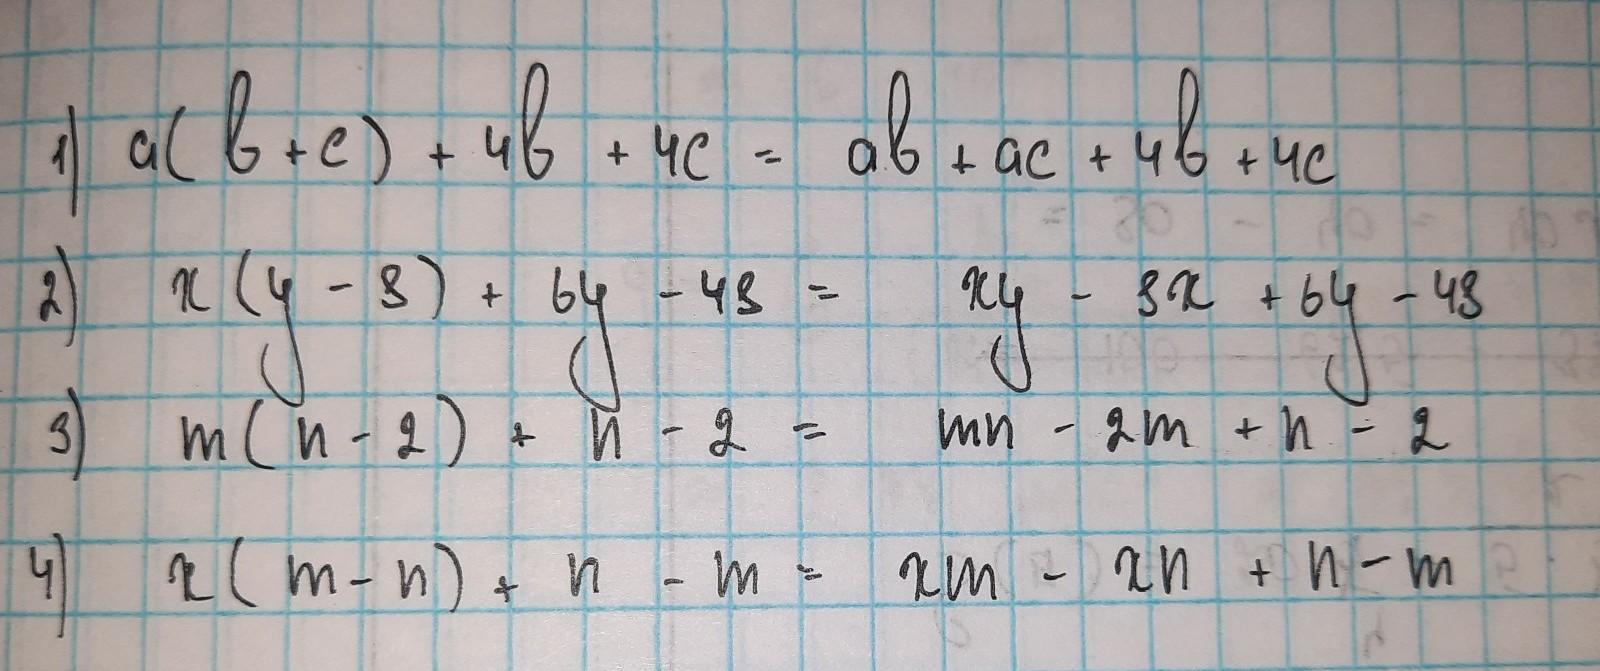 1) a(b+c) + 4b + 4c = ab + ac + 4b + 4c
2) x(y - 3) + 6y - 43 = xy - 3x + 6y - 43
3) m(n - 2) + n - 2 = mn - 2m + n - 2
4) x(m - n) + n - m = xm - xn + n - m